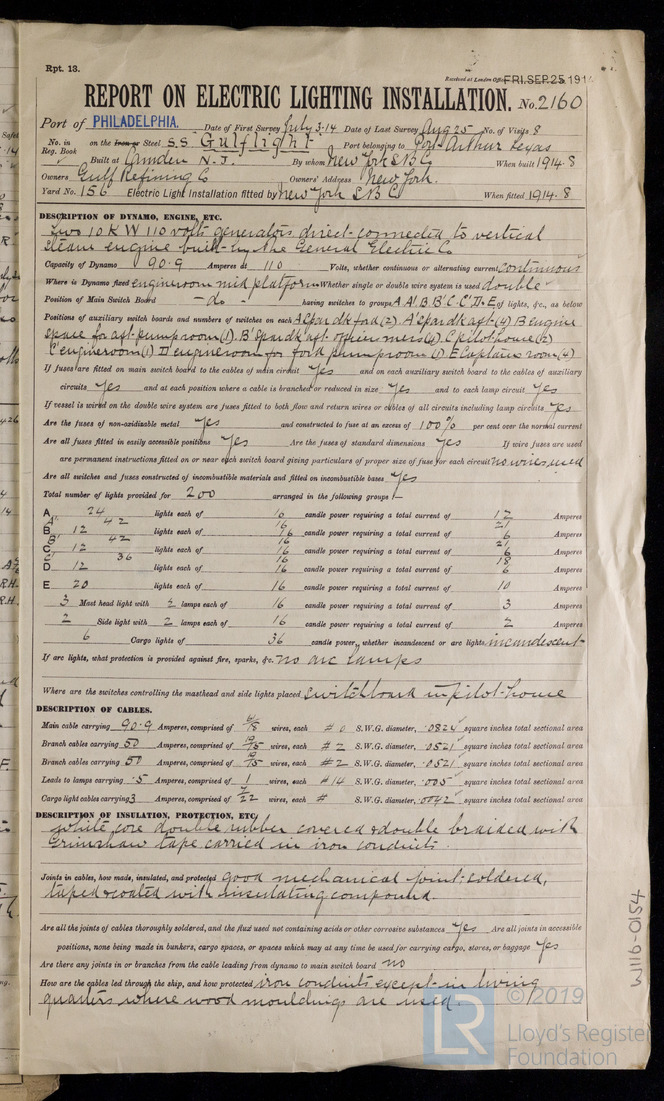 Rpt. 13.
Received at London Office FRI.SEP.25.191
REPORT ON ELECTRIC LIGHTING INSTALLATION. No. 2160
Port of PHILADELPHIA. Date of First Survey July 3-14 Date of Last Survey Aug 25 No. of Visits 8
No. in Reg. Book on the Iron or Steel S.S. Gulflight Port belonging to Port Arthur Texas
Built at Camden N.J. By whom New York SB Co When built 1914.8
Owners Gulf Refining Co Owners' Address New York.
Yard No. 156 Electric Light Installation fitted by New York SB Co When fitted 1914.8
DESCRIPTION OF DYNAMO, ENGINE, ETC.
Two 10 KW 110 volts generators direct-connected to vertical
steam engine built by the General Electric Co
Capacity of Dynamo 90.9 Amperes at 110 Volts, whether continuous or alternating current continuous
Where is Dynamo fixed engineroom mid platform Whether single or double wire system is used double
Position of Main Switch Board - do - having switches to groups A A' B B' C C' D & E of lights, &c., as below
Positions of auxiliary switch boards and numbers of switches on each A Spar dk ford (2). A' Spar dk aft (4) B engine
space for aft pump room (1). B' Spar dk aft officers mess (4) C pilothouse (2)
C' engineroom (1) D engineroom for ford pumproom (1) E Captains room (4)
If fuses are fitted on main switch board to the cables of main circuit Yes and on each auxiliary switch board to the cables of auxiliary
circuits Yes and at each position where a cable is branched or reduced in size Yes and to each lamp circuit Yes
If vessel is wired on the double wire system are fuses fitted to both flow and return wires or cables of all circuits including lamp circuits Yes
Are the fuses of non-oxidizable metal Yes and constructed to fuse at an excess of 100% per cent over the normal current
Are all fuses fitted in easily accessible positions Yes Are the fuses of standard dimensions Yes If wire fuses are used
are permanent instructions fitted on or near each switch board giving particulars of proper size of fuse for each circuit no wires used
Are all switches and fuses constructed of incombustible materials and fitted on incombustible bases Yes
Total number of lights provided for 200 arranged in the following groups :-
A 24 lights each of 16 candle power requiring a total current of 12 Amperes
A' 42 16 21
B 12 lights each of 16 candle power requiring a total current of 6 Amperes
B' 42 16 21
C 12 lights each of 16 candle power requiring a total current of 6 Amperes
C' 36 16 18
D 12 lights each of 16 candle power requiring a total current of 6 Amperes
E 20 lights each of 16 candle power requiring a total current of 10 Amperes
3 Mast head light with 2 lamps each of 16 candle power requiring a total current of 3 Amperes
2 Side light with 2 lamps each of 16 candle power requiring a total current of 2 Amperes
6 Cargo lights of 36 candle power, whether incandescent or arc lights incandescent
If arc lights, what protection is provided against fire, sparks, &c. no arc lamps
Where are the switches controlling the masthead and side lights placed switchboard in pilot-house
DESCRIPTION OF CABLES.
Main cable carrying 90.9 Amperes, comprised of wires, each # 0 S.W.G. diameter, .0824 square inches total sectional area
Branch cables carrying 50 Amperes, comprised of 19/15 wires, each # 2 S.W.G. diameter, .0521 square inches total sectional area
Branch cables carrying 50 Amperes, comprised of 19/15 wires, each # 2 S.W.G. diameter, .0521 square inches total sectional area
Leads to lamps carrying .5 Amperes, comprised of 1 wires, each # 14 S.W.G. diameter, .005 square inches total sectional area
Cargo light cables carrying 3 Amperes, comprised of 7/22 wires, each # S.W.G. diameter, .0042 square inches total sectional area
DESCRIPTION OF INSULATION, PROTECTION, ETC.
white core double rubber covered & double braided with
Grimshaw tape carried in iron conduits.
Joints in cables, how made, insulated, and protected good mechanical joint-soldered,
taped & coated with insulating compound.
Are all the joints of cables thoroughly soldered, and the flux used not containing acids or other corrosive substances Yes Are all joints in accessible
positions, none being made in bunkers, cargo spaces, or spaces which may at any time be used for carrying cargo, stores, or baggage Yes
Are there any joints in or branches from the cable leading from dynamo to main switch board no
How are the cables led through the ship, and how protected iron conduits except in living
quarters where wood mouldings are used.
W116-0154
© 2019
LR
Lloyd's Register
Foundation